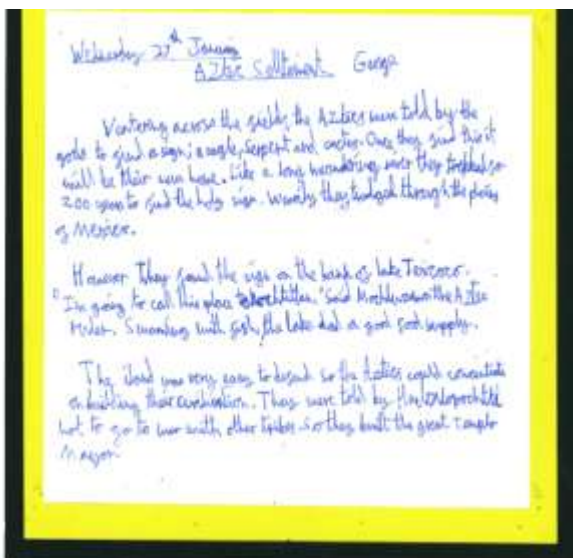 Wednesday 27th January
Aztec Settlement George
Ventering across the fields, the Aztecs were told by the
gods to find a sign; a eagle, serpent and cactus. Once they find this it
will be their new home. Like a long meandering river they trekked for
200 years to find the holy sign. Wearily they trudged through the plains
of Mexico.
However they found the sign on the bank of lake Texcoco.
"I'm going to call this place said the Aztec
ruler. Swarming with fish, the lake had a good food supply.
The island was very easy to defend so the Aztecs could concentrate
on building their civilisation. They were told by
not to go to war with other tribes. So they built the great temple
Mayor.